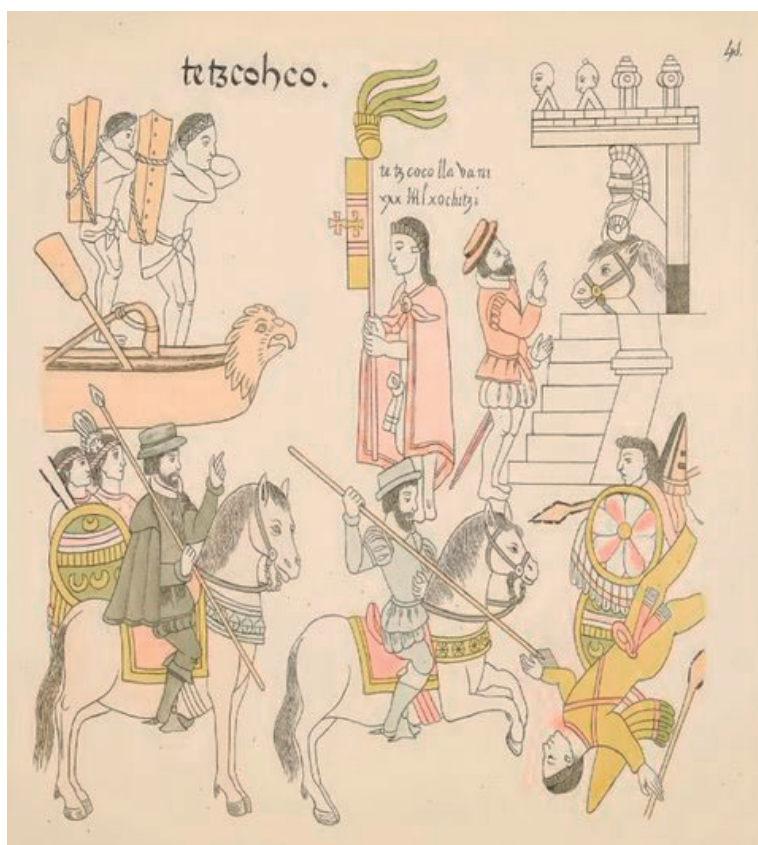 tetzcohco.
41.
tetzcoco tlatoani
yxtlilxochitzi